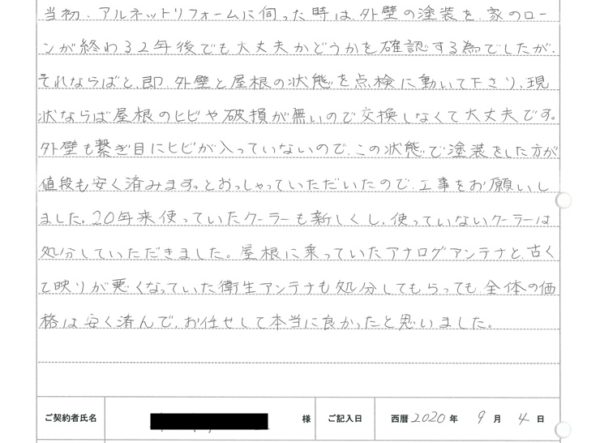 当初、アルネットリフォームに伺った時は、外壁の塗装を、家のロー
ンが終わる2年後でも大丈夫かどうかを確認する為でしたが、
それならばと、即、外壁と屋根の状態を点検に動いて下さり、現
状ならば屋根のヒビや破損が無いので交換しなくて大丈夫です。
外壁も繋ぎ目にヒビが入っていないので、この状態で塗装をした方が
値段も安く済みます。とおっしゃっていただいたので、工事をお願いし
ました。20年来使っていたクーラーも新しくし、使っていないクーラーは
処分していただきました。屋根に乗っていたアナログアンテナと、古く
て映りが悪くなっていた衛生アンテナも処分してもらっても、全体の価
格は安く済んで、お任せして本当に良かったと思いました。
ご契約者氏名 様 ご記入日 西暦 2020 年 9 月 4 日